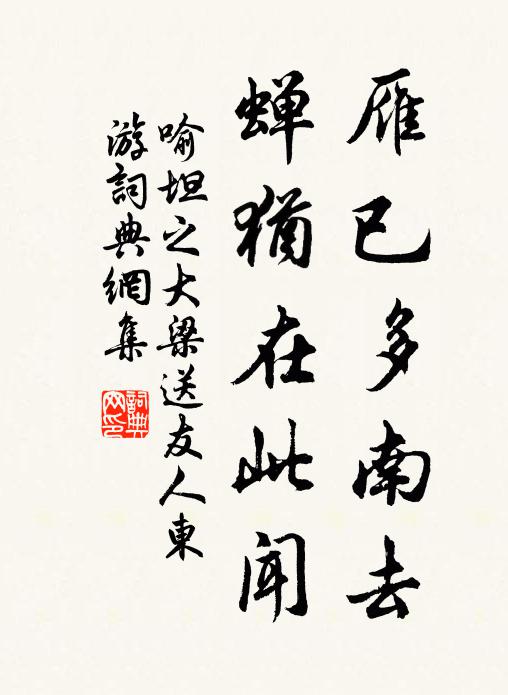 雁已多南去
蝉猶在此聞
喻坦之大梁送友人東
游詞典網集
詞典网印